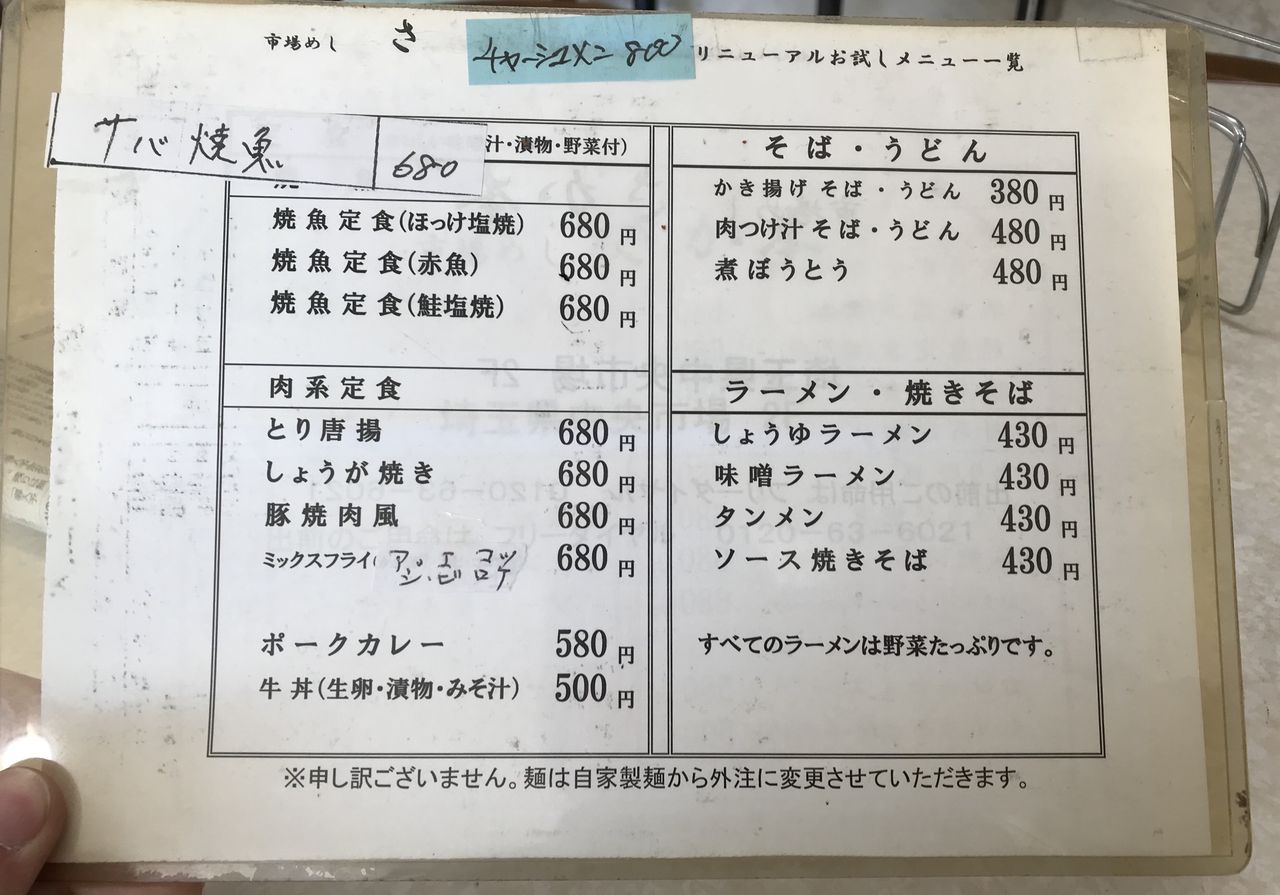 市場めし さ
チャーシュメン 800
リニューアルお試しメニュー一覧
サバ焼魚 680
汁・漬物・野菜付)
焼魚定食(ほっけ塩焼) 680円
焼魚定食(赤魚) 680円
焼魚定食(鮭塩焼) 680円
肉系定食
とり唐揚 680円
しょうが焼き 680円
豚焼肉風 680円
ミックスフライ(アジ・エビ コロッケ) 680円
ポークカレー 580円
牛丼(生卵・漬物・みそ汁) 500円
そば・うどん
かき揚げそば・うどん 380円
肉つけ汁そば・うどん 480円
煮ぼうとう 480円
ラーメン・焼きそば
しょうゆラーメン 430円
味噌ラーメン 430円
タンメン 430円
ソース焼きそば 430円
すべてのラーメンは野菜たっぷりです。
※申し訳ございません。麺は自家製麺から外注に変更させていただきます。